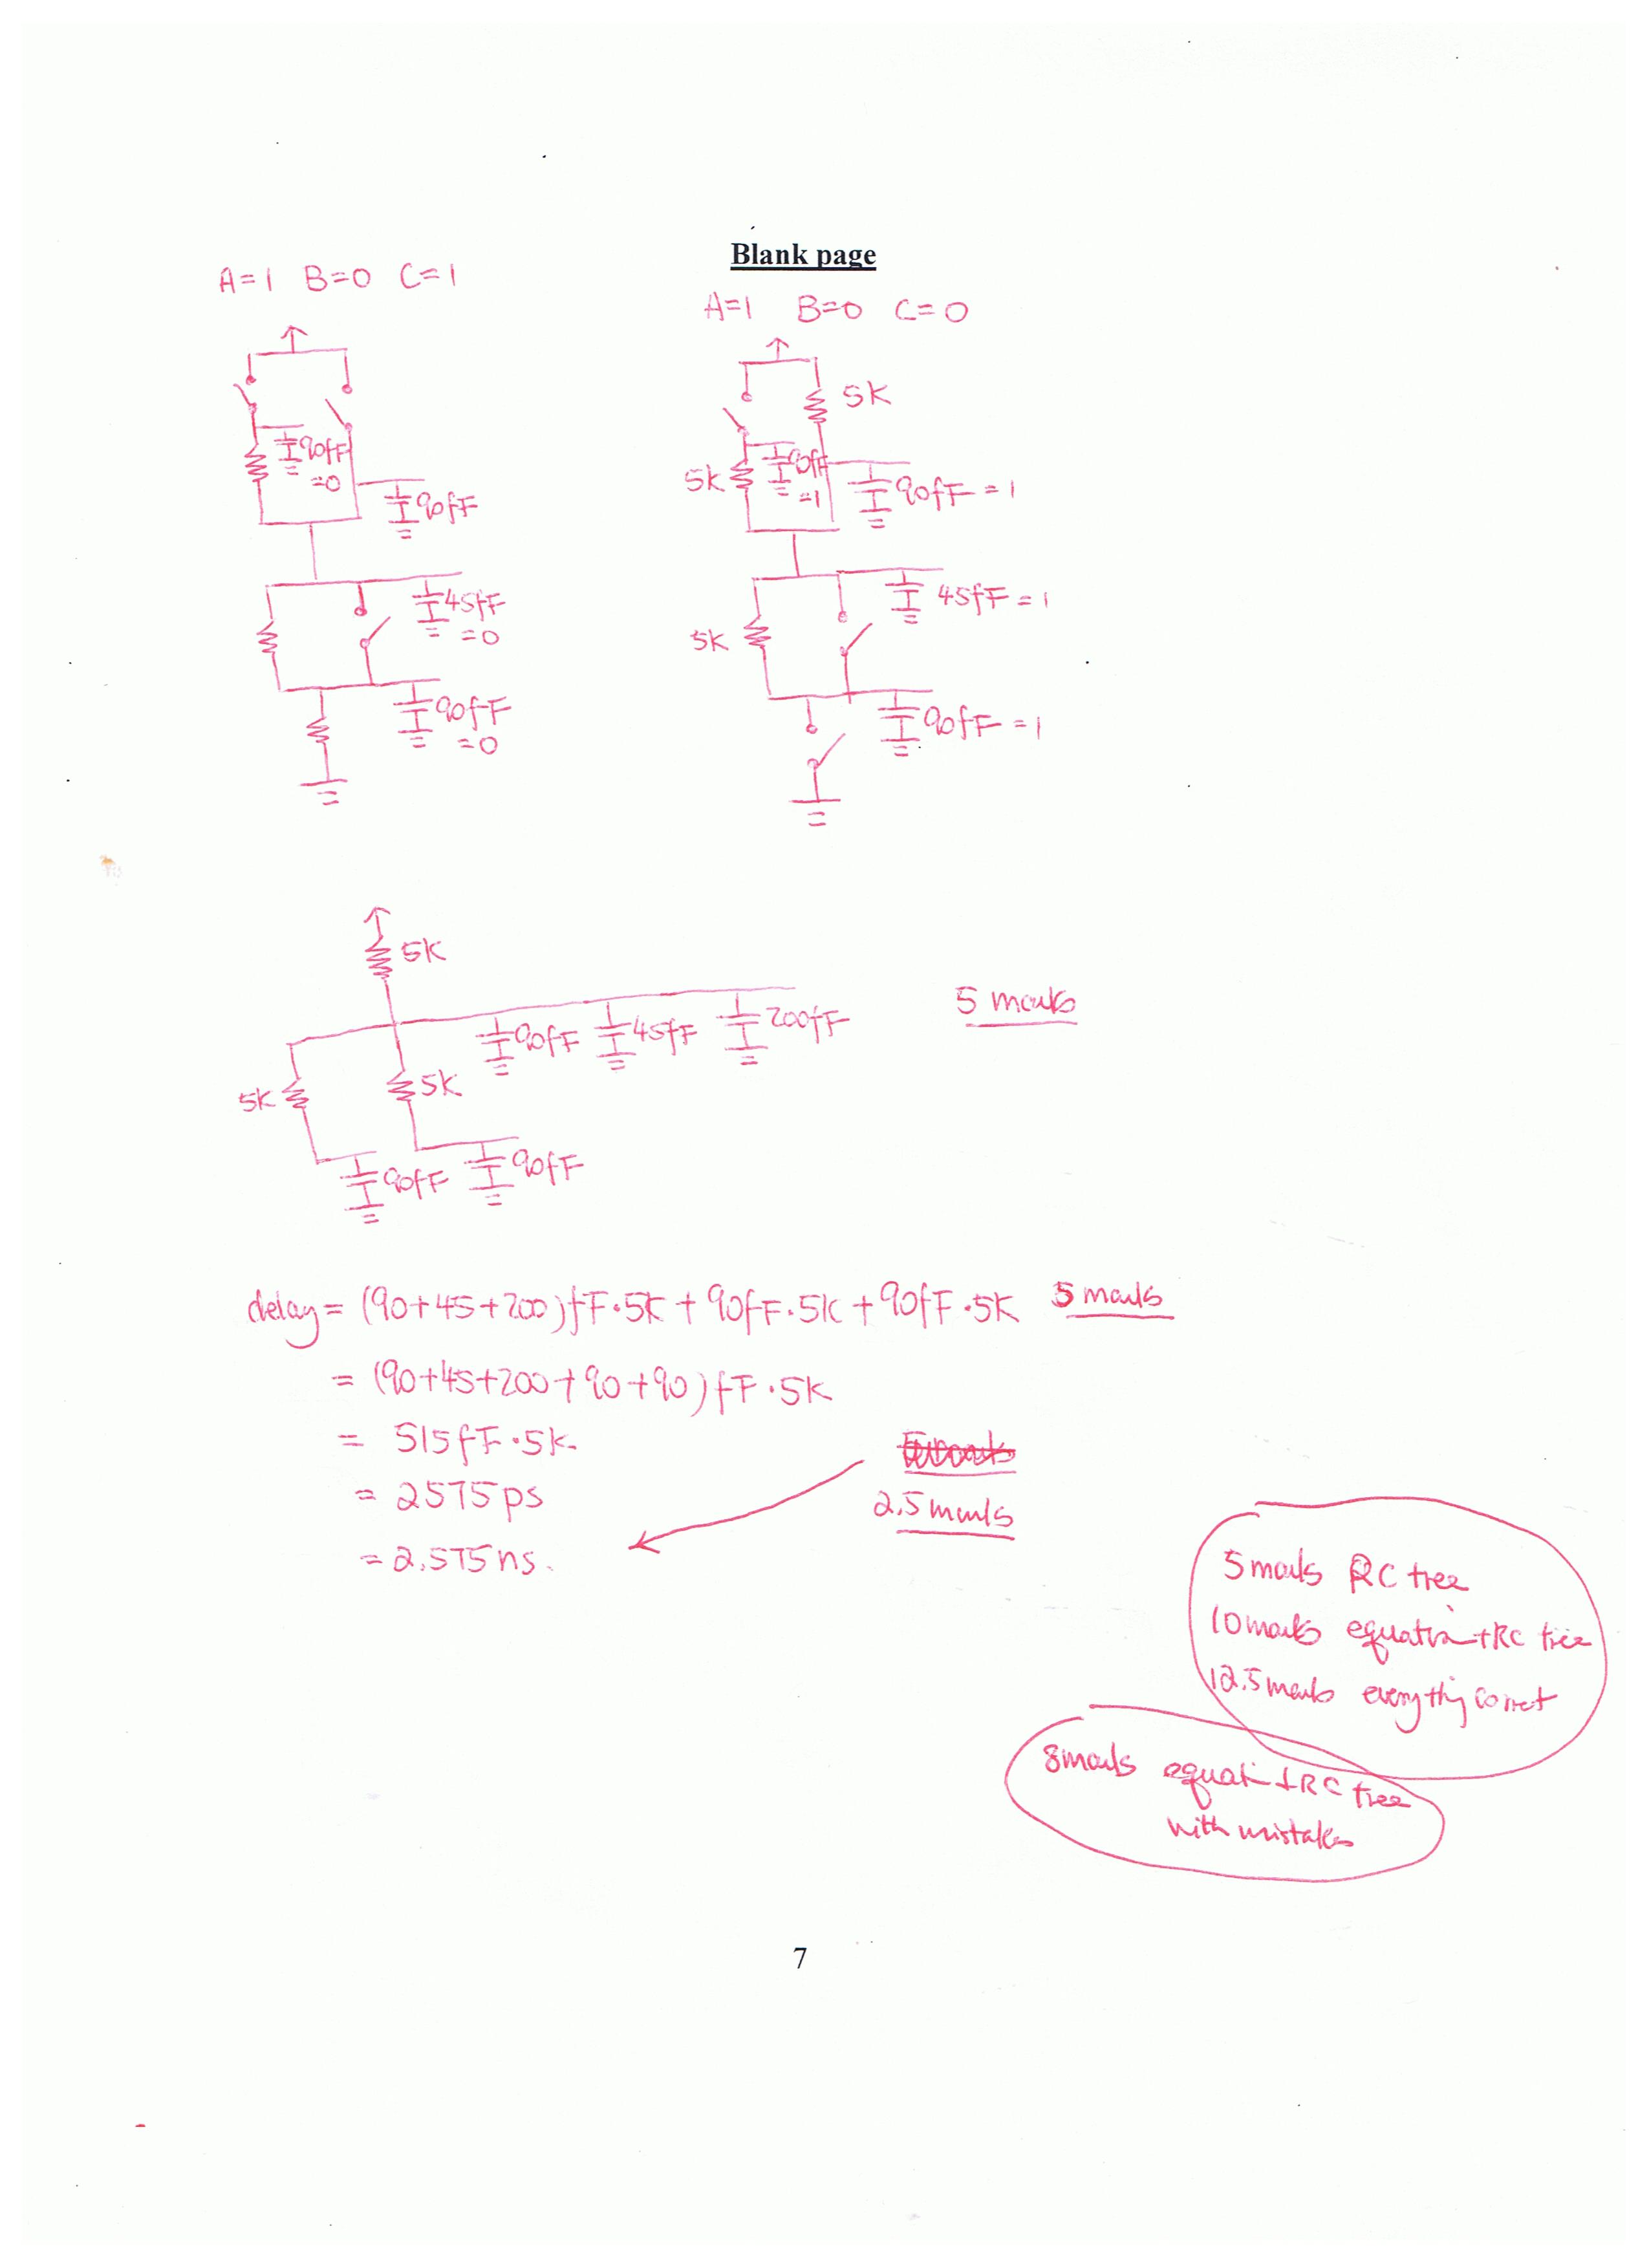 Blank page
A=1 B=0 C=1
90fF
=0
90fF
45fF
=0
90fF
=0
A=1 B=0 C=0
5K
5K
90fF
=1
90fF = 1
45fF = 1
5K
90fF = 1
5K
90fF
45fF
200fF
5 marks
5K
5K
90fF
90fF
delay = (90+45+200)fF·5K + 90fF·5K + 90fF·5K 5 marks
= (90+45+200+90+90)fF·5K
= 515fF·5K.
= 2575ps
2.5 marks
= 2.575ns.
5 marks RC tree
10 marks equation + RC tree
12.5 marks everything correct
8 marks equati + RC tree
with mistakes
7